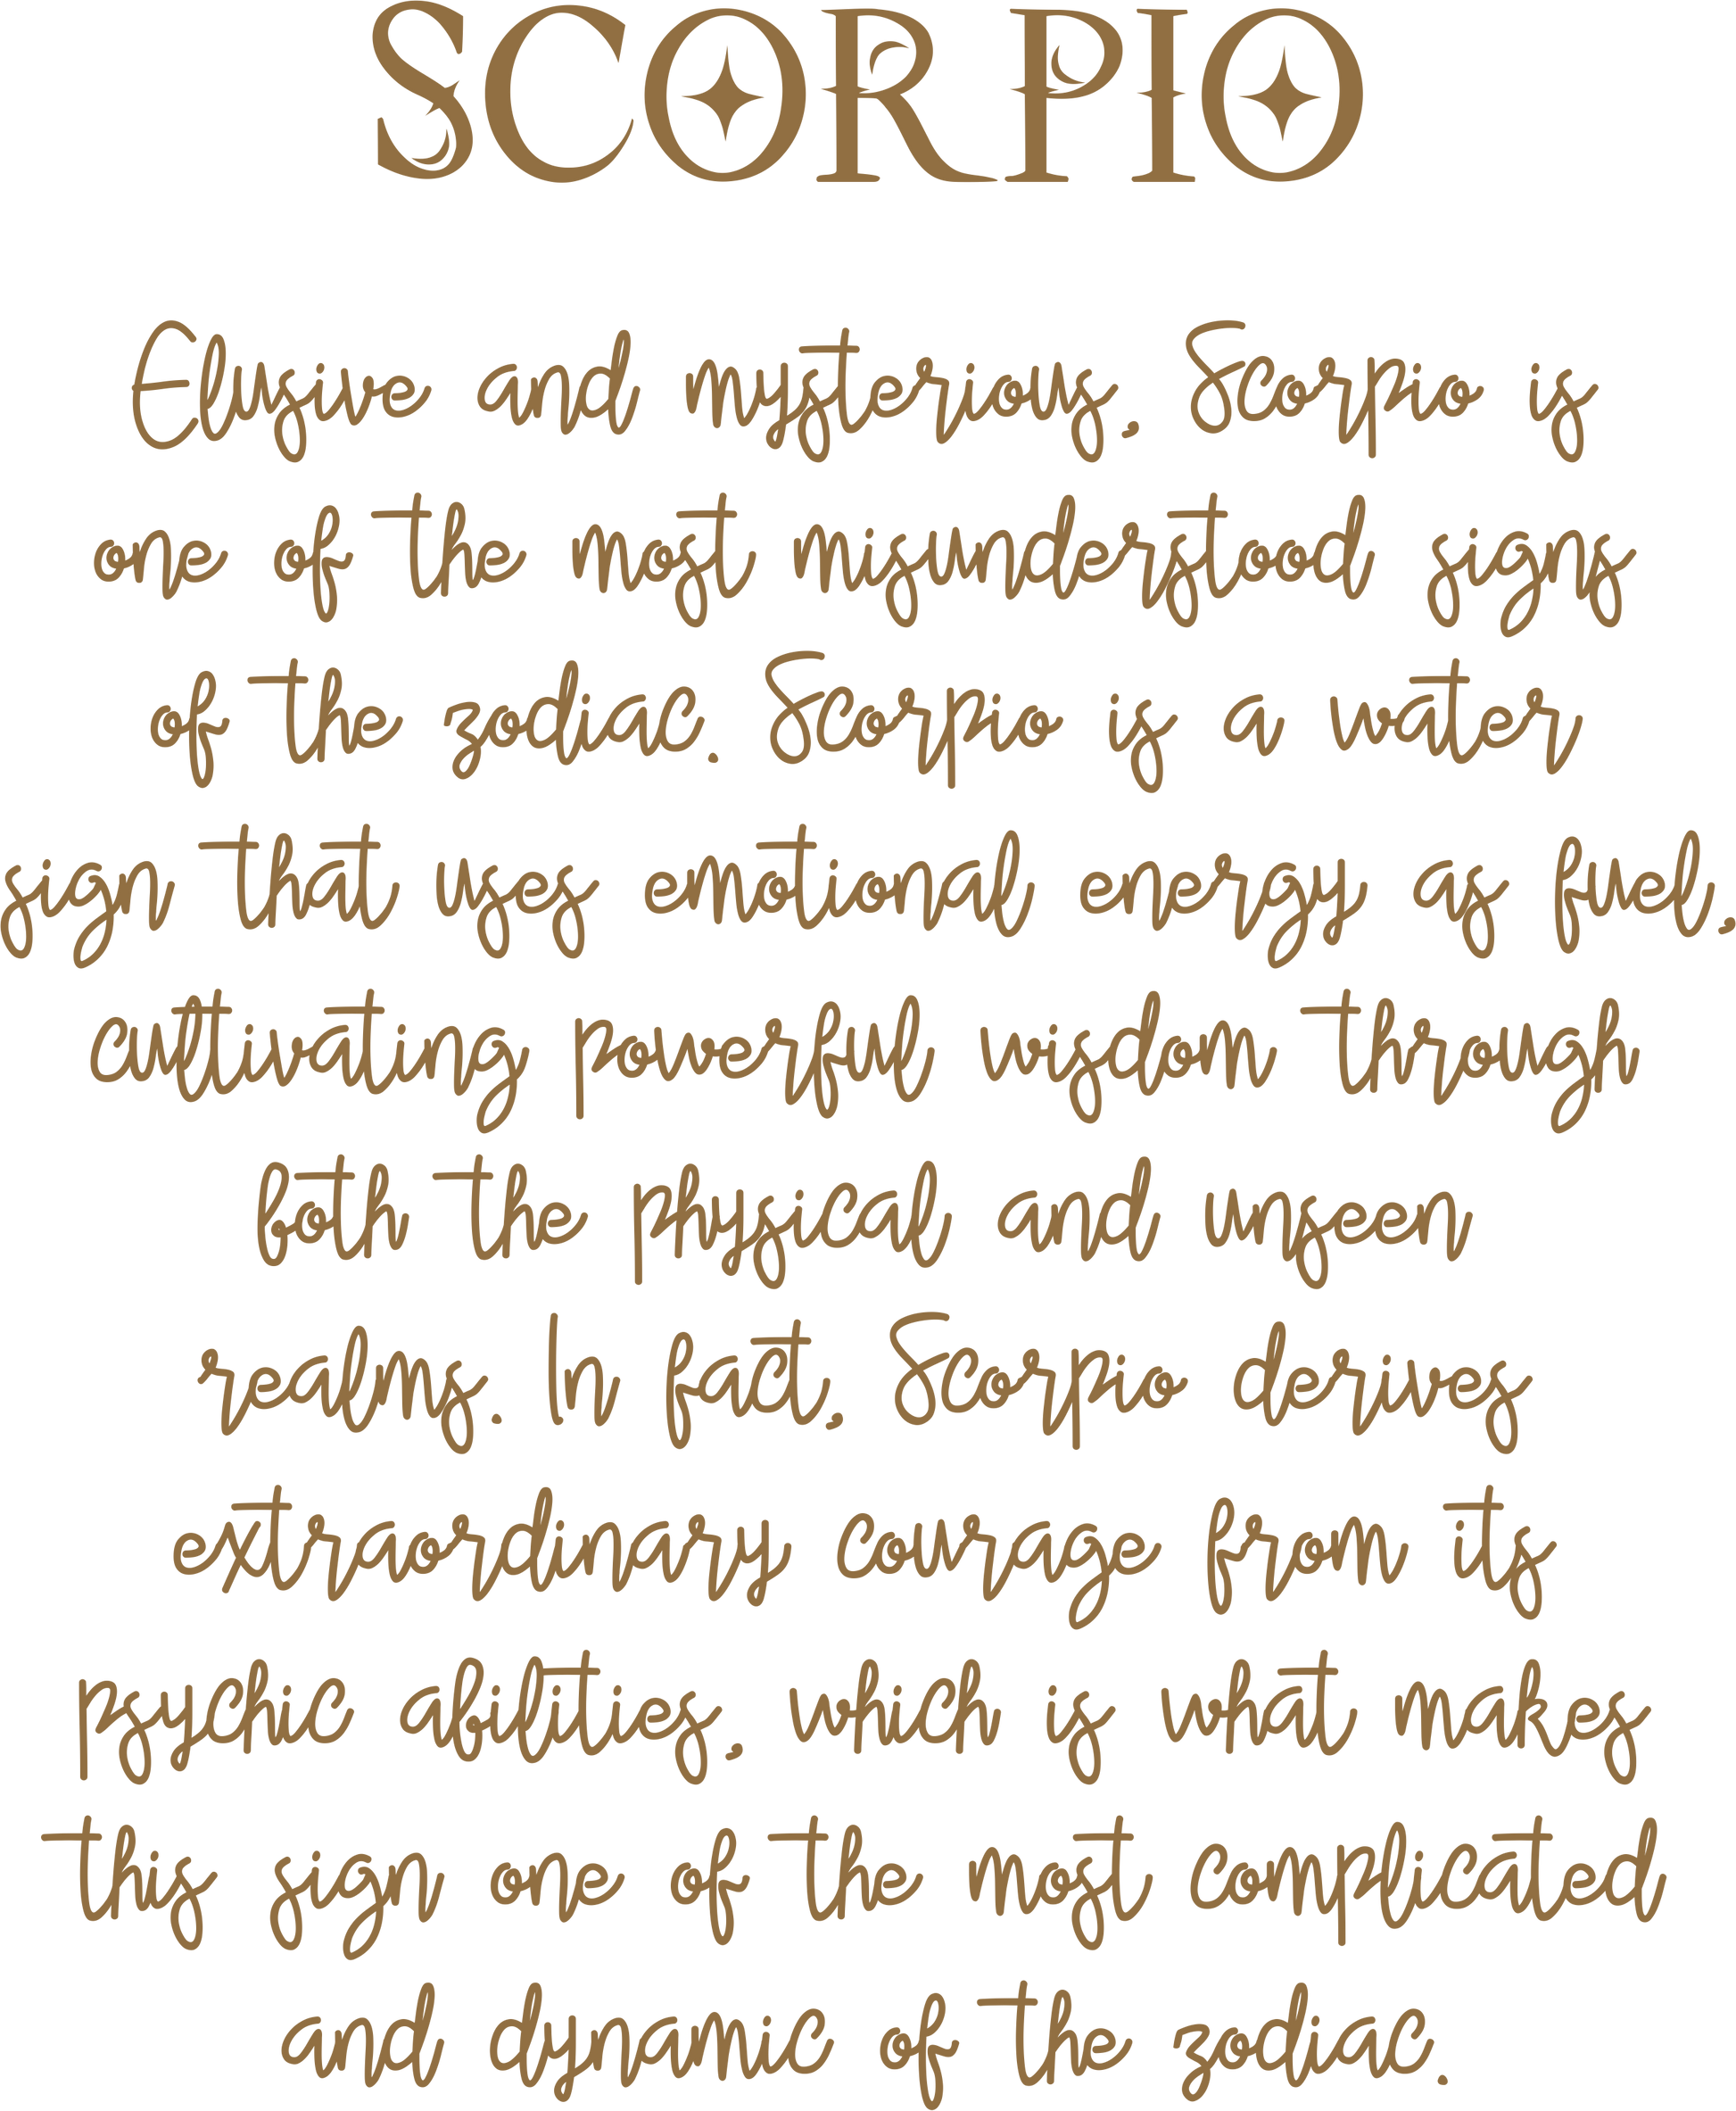 SCORPIO
Elusive and mysterious, Scorpio is
one of the most misunderstood signs
of the zodiac. Scorpio is a water
sign that uses emotional energy as fuel,
cultivating powerful wisdom through
both the physical and unseen
realms. In fact, Scorpio derives
extraordinary courage from its
psychic abilities, which is what makes
this sign one of the most complicated
and dynamic of the zodiac.